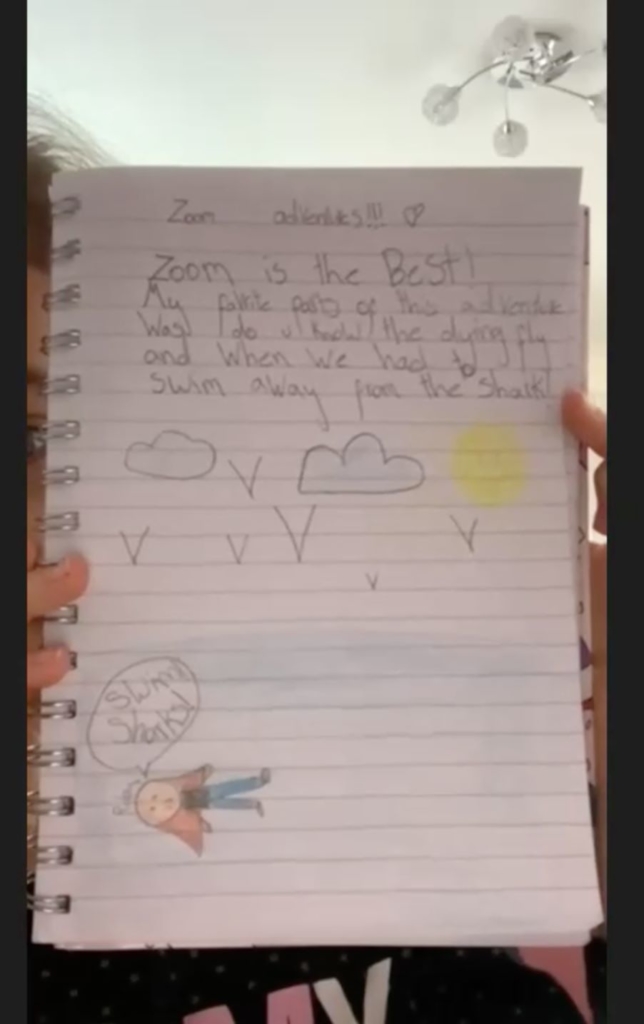 Zoom adventures!!! ♡
Zoom is the BeSt!
My favrite parts of this adventure
Was (do u know) the dying fly
and when we had to
Swim away from the Shark!
Swim!
Sharks!
MY